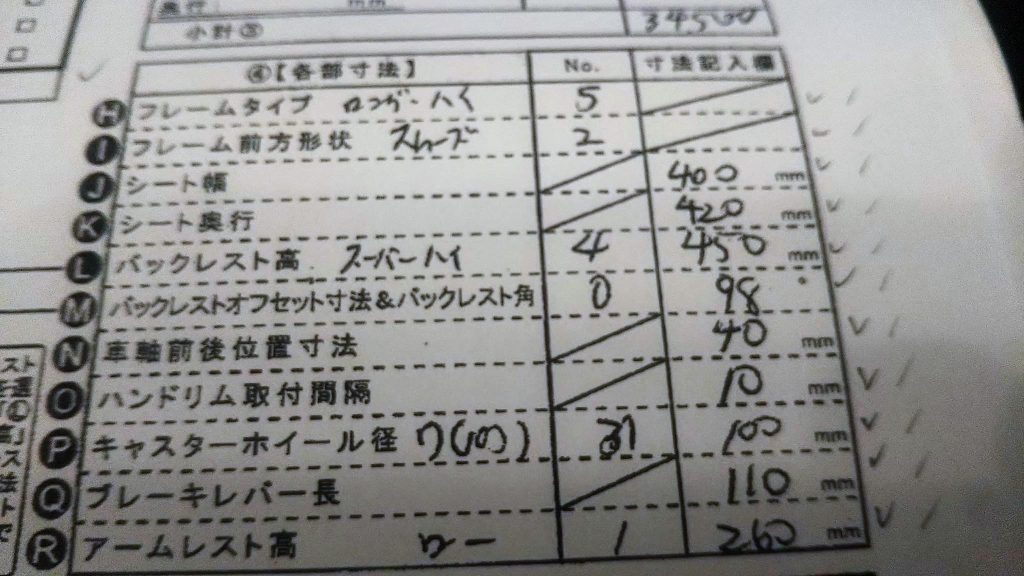 奥行: mm
小計③ 34500
④【各部寸法】 No. 寸法記入欄
H フレームタイプ ロング・ハイ 5
I フレーム前方形状 2
J シート幅 400 mm
K シート奥行 420 mm
L バックレスト高 スーパーハイ 4 450 mm
M バックレストオフセット寸法&バックレスト角 0 98 °
N 車軸前後位置寸法 40 mm
O ハンドリム取付間隔 10 mm
P キャスターホイール径 100 mm
Q ブレーキレバー長 110 mm
R アームレスト高 ロー 1 260 mm